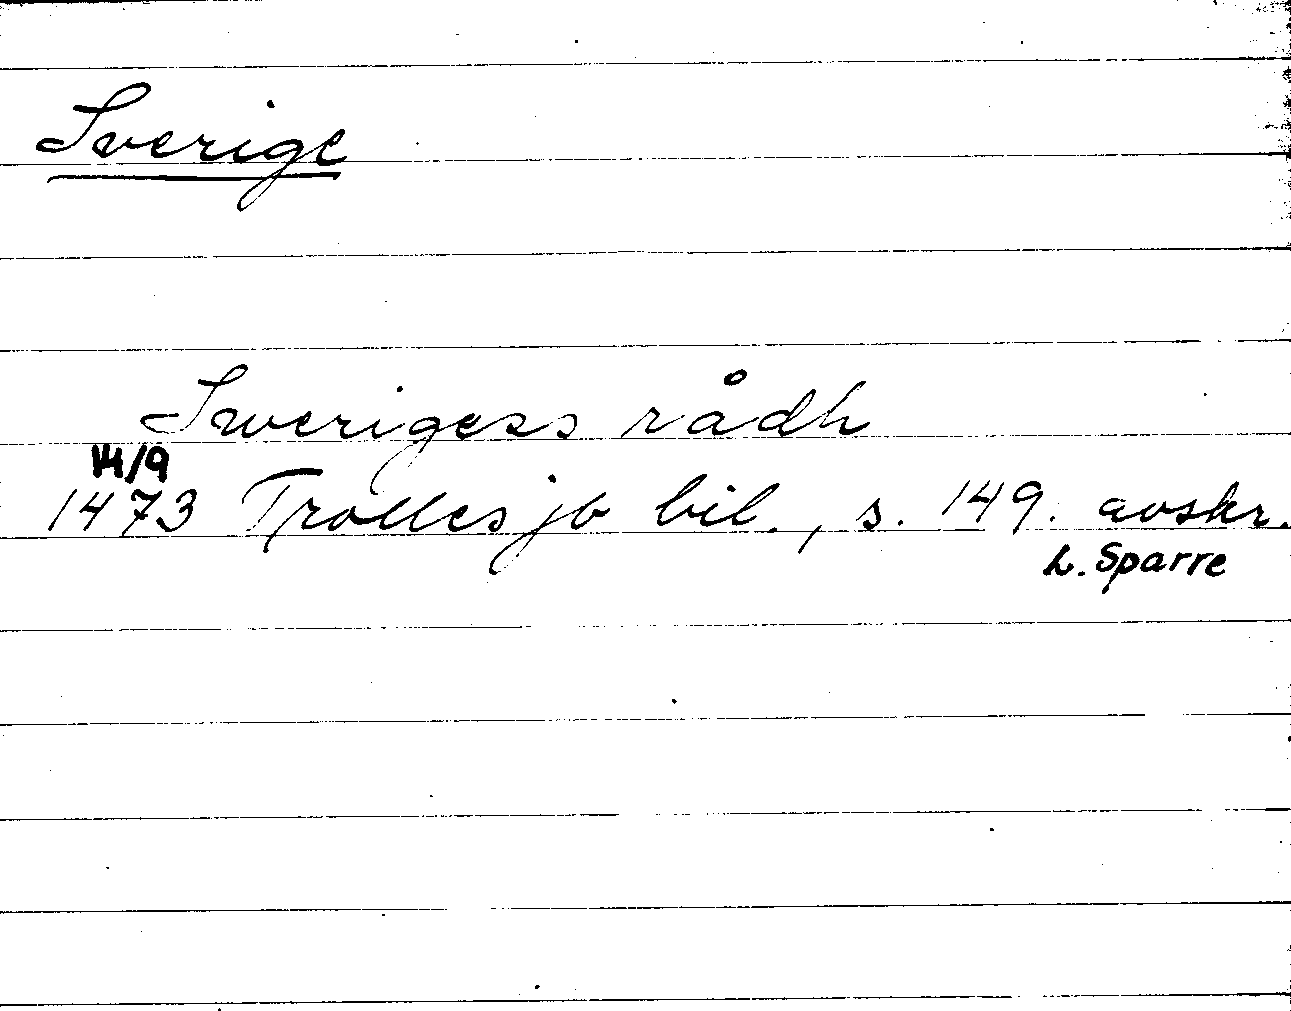 Sverige
Swerigess rådh
14/9
1473 Trolles jb bil., s. 149. avskr.
L. Sparre